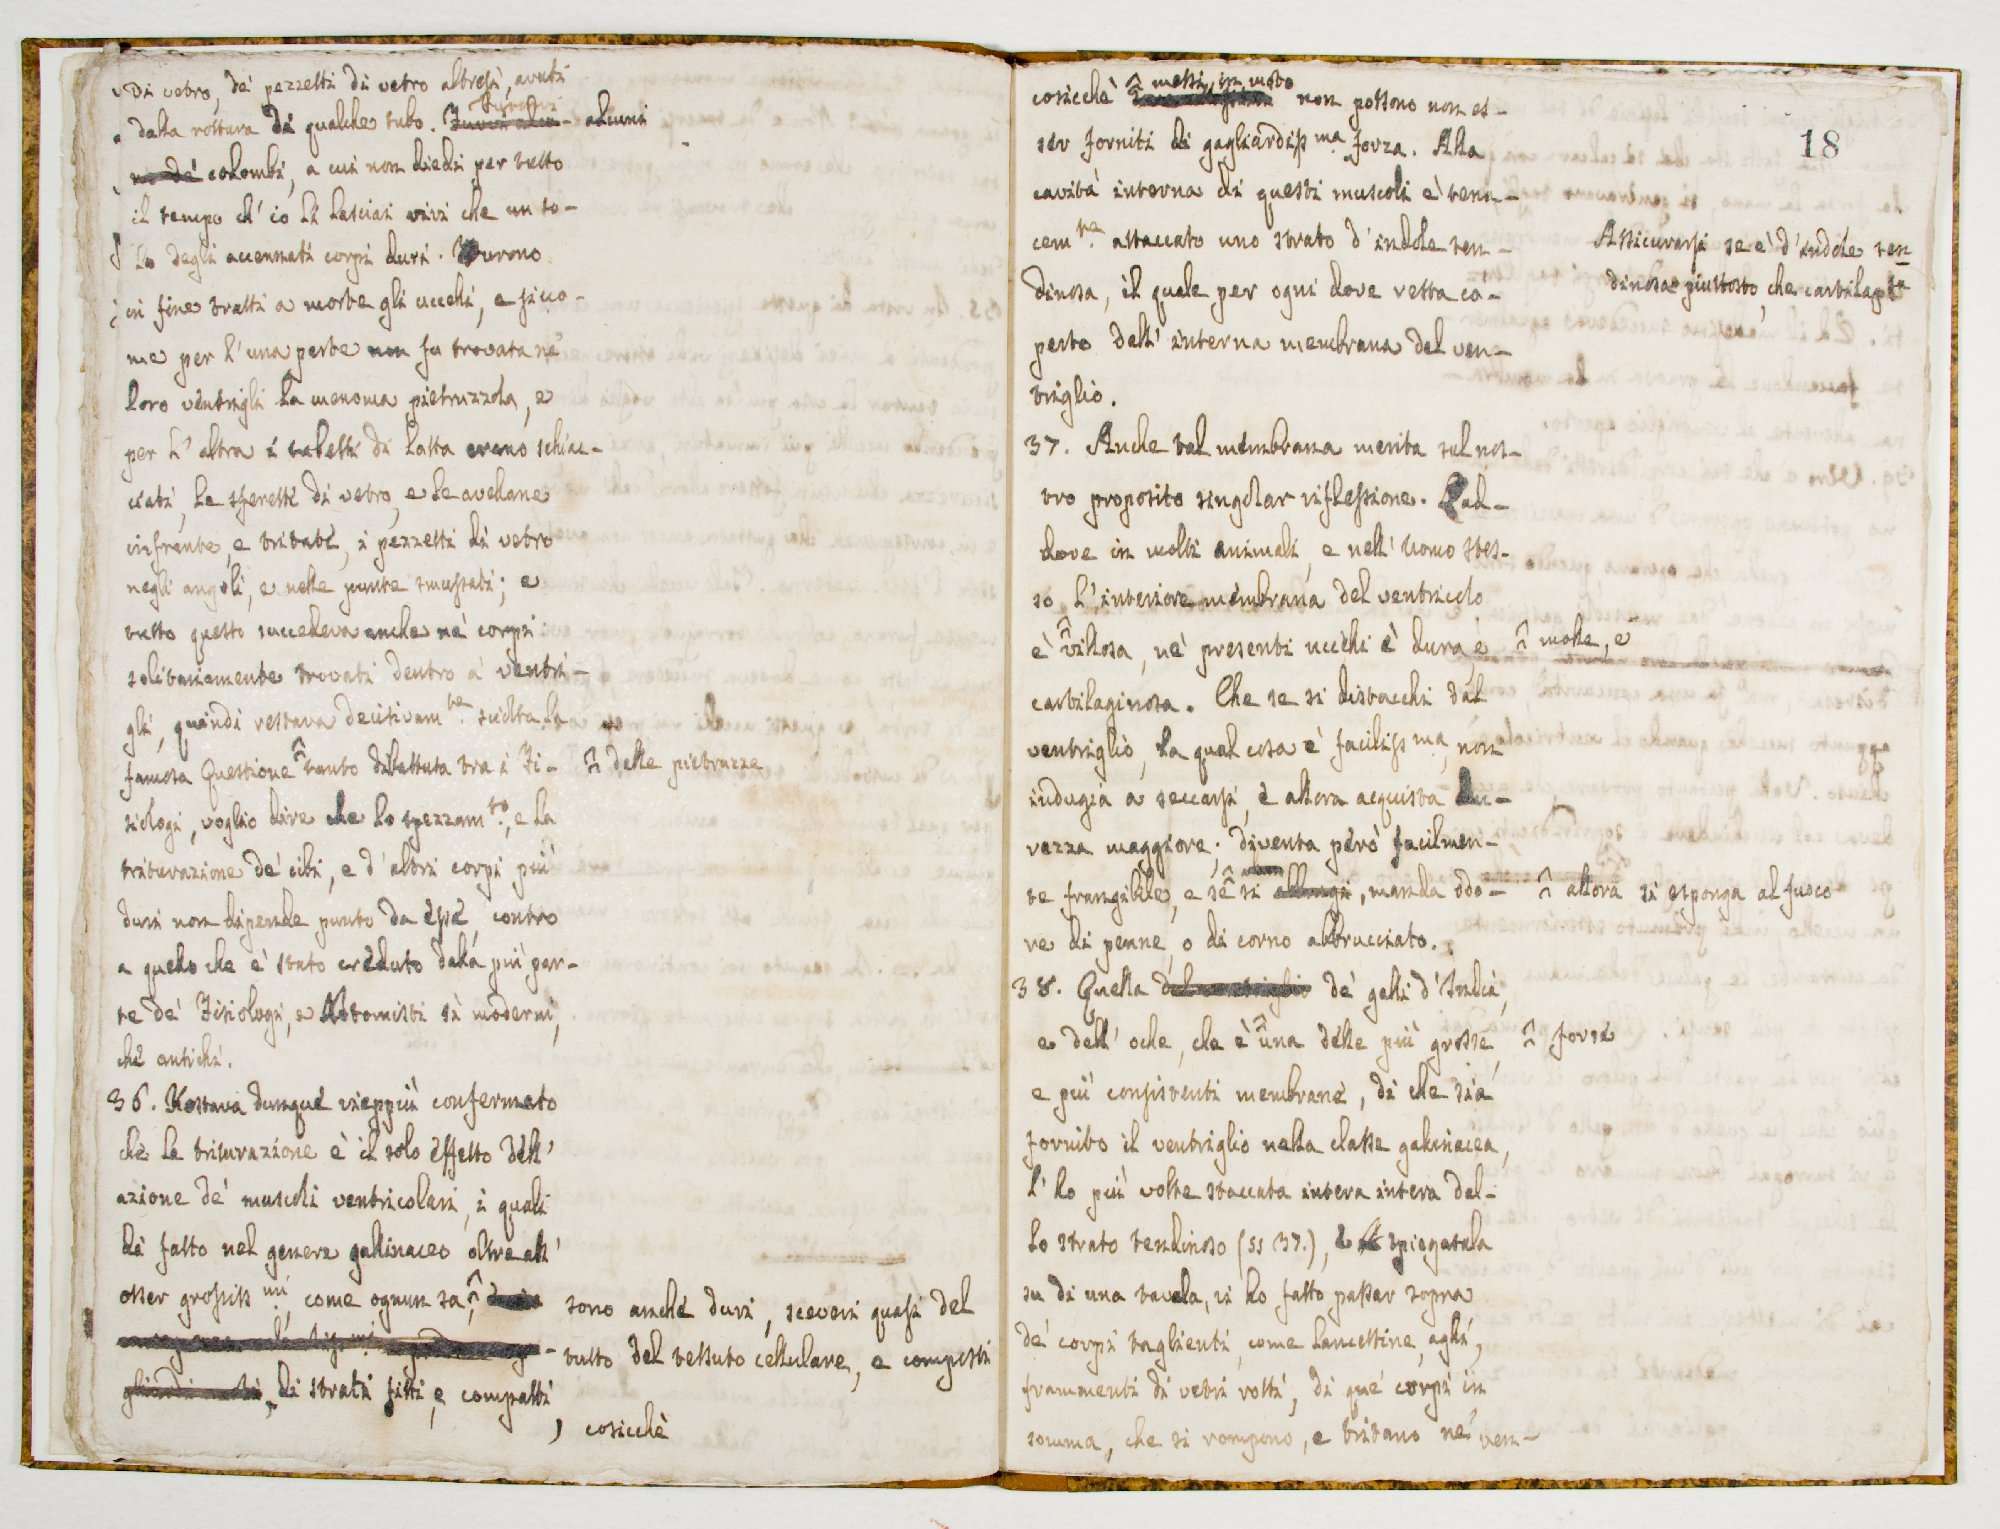 di vetro, de' pezzetti di vetro altresì, avuti
dalla rottura di qualche tubo. alcuni
colombi, a cui non diedi per tutto
il tempo ch' io li lasciai vivi che un so-
lo degli accennati corpi duri. Furono
in fine tratti a morte gli uccelli, e sicco-
me per l' una parte non fu trovata ne'
loro ventrigli la menoma pietruzzola, e
per l' altra i tubetti di latta erano schiac-
ciati, le sferette di vetro, e le avellane
infrante, e tritate, i pezzetti di vetro
negli angoli, e nelle punte smussati; e
tutto questo succedeva anche ne' corpi
solitariamente trovati dentro a' ventri-
gli, quindi restava decisivam.te sciolta la
famosa Questione ^ tanto dibattuta tra i Fi-
^ delle pietruzze
siologi, voglio dire che lo spezzam.to, e la
triturazione de' cibi, e d' altri corpi più
duri non dipende punto da esse, contro
a quello che è stato creduto dalla più par-
te de' Fisiologi, e Notomisti sì moderni,
che antichi.
36. Restava dunque vieppiù confermato
che la triturazione è il solo effetto dell'
azione de' muscoli ventricolari, i quali
di fatto nel genere gallinaceo oltre all'
esser grossiss.mi, come ognun sa, ^
sono anche duri, sceveri quasi del
tutto del tessuto cellulare, e composti
di strati fitti, e compatti
, cosicchè
18
cosicchè ^ messi in moto non possono non es-
ser forniti di gagliardiss.ma forza. Alla
cavità interna di questi muscoli è tena-
cem.te attaccato uno strato d' indole ten-
dinosa, il quale per ogni dove resta co-
perto dell' interna membrana del ven-
triglio.
Assicurarsi se è d' indole ten
dinosa piuttosto, che cartilag.sa
37. Anche tal membrana merita sul nos-
tro proposito singolar riflessione. Lad-
dove in molti animali, e nell' Uomo stes-
so l' interiore membrana del ventricolo
è ^ villosa, ne' presenti uccelli è dura e
^ molle, e
cartilaginosa. Che se si distacchi dal
ventriglio, la qual cosa è faciliss.ma, non
indugia a seccarsi, e allora acquista du-
rezza maggiore; diventa però facilmen-
te frangibile, e se ^ si allungi, manda odo-
^ allora si esponga al fuoco
re di penne, o di corno abbrucciato.
38. Quella del ventriglio de' galli d' India,
e dell' oche, che è ^ una delle più grosse,
^ forse
e più consistenti membrane, di che sia
fornito il ventriglio nella classe gallinacea,
l' ho più volte staccata intera intera dal-
lo strato tendinoso (ss 37.), e spiegatala
su di una tavola, vi ho fatto passar sopra
de' corpi taglienti, come lancettine, aghi,
frammenti di vetri rotti, di que' corpi in
somma, che si rompono, e tritano ne' ven-